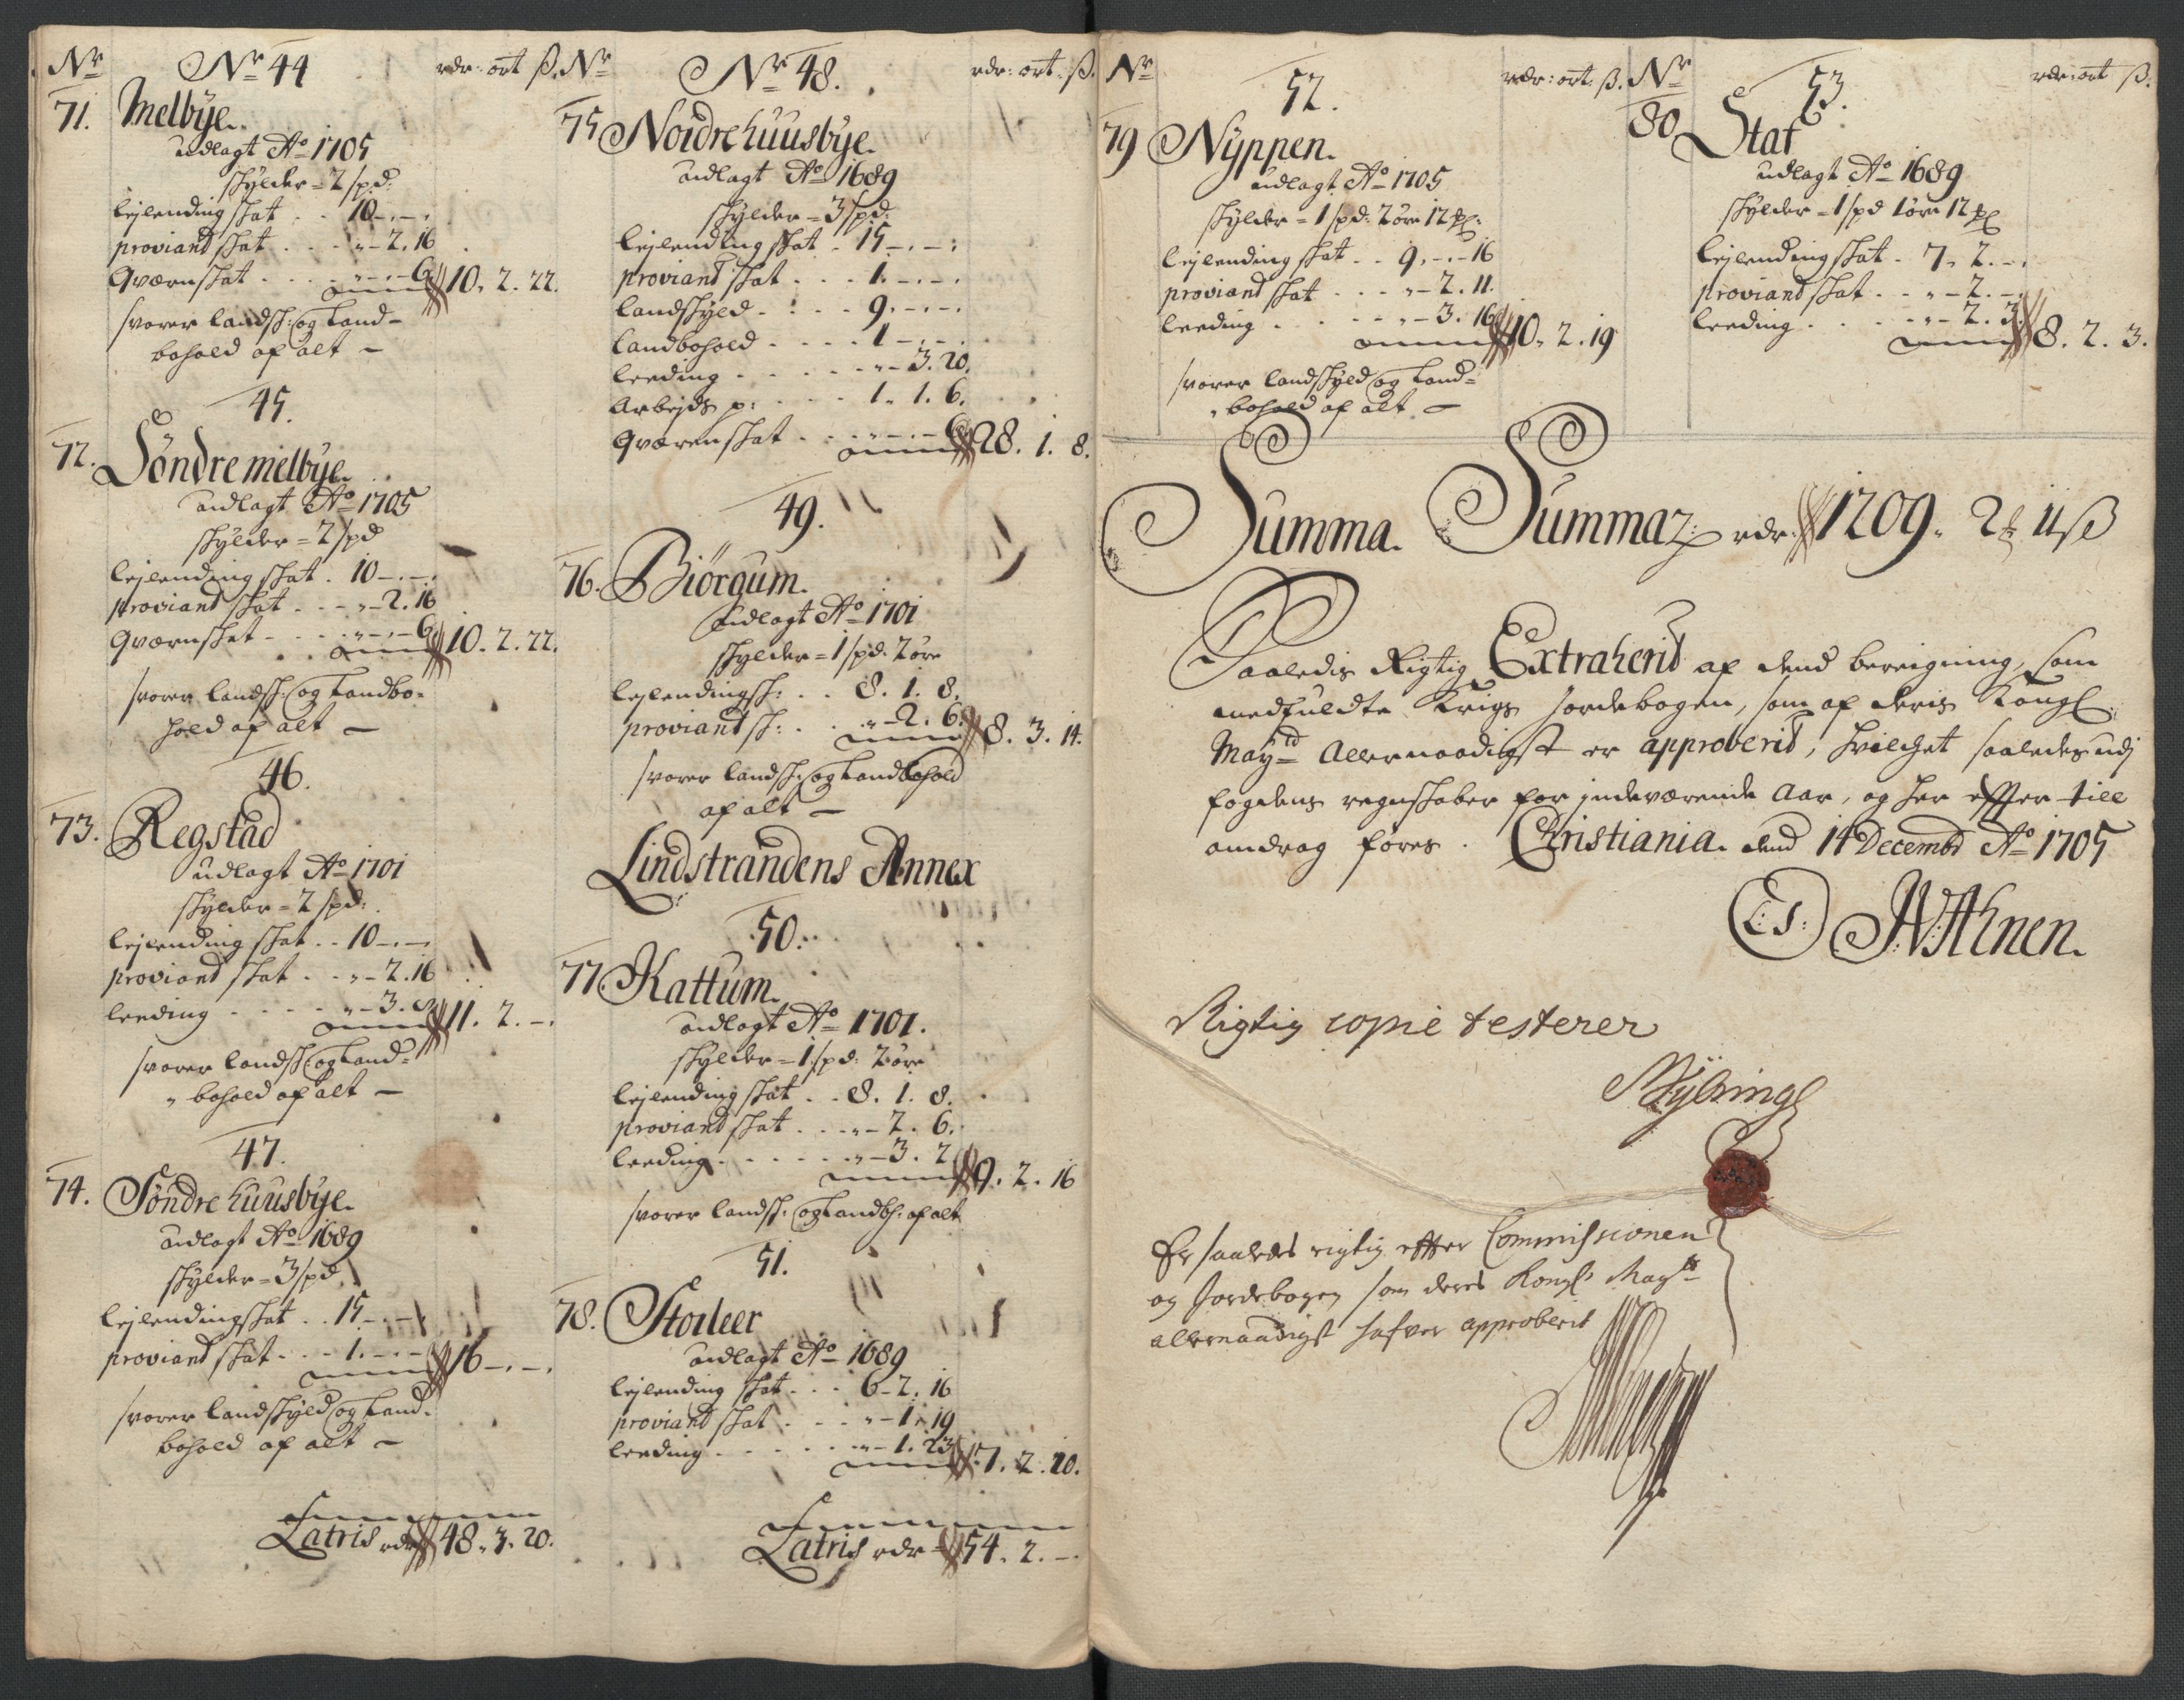 Nr Nr 44 rdr: ort ß.
71. Melbÿe.
udlagt Ao 1705
skylder = 2 spd:
leylending skat . . 10 – . – .
proviant skat . . . „ – 2. 16
Qværnskat . . . „ – . – 6 10. 2. 22.
svarer landsk: og Land=
bohold af alt –
45.
72. Söndre melbÿe.
udlagt Ao 1705
skylder = 2 spd
leylending skat . 10 – . – .
proviant skat . . . „ – 2. 16
Qværnskat . . . „ – . – 6 10. 2. 22.
svarer landsk: og Landbo=
hold af alt –
46.
73. Regstad
udlagt Ao 1701
skylder = 2 spd:
leylending skat . . 10 – . –
proviant skat . . „ – 2. 16
leeding . . . . „ – 3. 8 11. 2. – .
svarer landsk: og Land=
„ bohold af alt –
47.
74. Söndre huusbÿe.
udlagt Ao 1689
skylder = 3 spd
leylendingskat . . 15 – . –
proviant skat . . . 1. – . – 16 – . – .
svarer landskyld og Land=
bohold af alt –
Latris rdr 48. 3. 20.
Nr Nr 48. rdr: ort. ß.
75 Nordre huusbÿe.
udlagt Ao 1689
skylder = 3 spd:
leylending skat . 15 – . – :
proviant skat . . . 1. – . – .
landskyld . . . . 9. – . – .
landbohold . . . . 1 – . – .
leeding . . . . . „ – 3. 20.
Arbejds p: . . . 1. 1. 6.
Qværenskat . . . „ – . – 6 28. 1. 8.
49.
76. Biörgum.
udlagt Ao 1701
skylder = 1 spd. 2 öre
leylendingsk: . . 8. 1. 8.
proviant sk: . . „ – 2. 6. 8. 3. 14.
svarer landsk: og Landbohold
af alt –
Lindstrandens Annex
50.
77. Kattum.
udlagt Ao 1701.
skylder = 1 spd: 2 öre
leylending skat . . 8. 1. 8.
proviant skat . . . „ – 2. 6.
leeding . . . . . „ – 3. 2 9. 2. 16
svarer landsk: og Landbh: af alt
51.
78. Storleer
udlagt Ao 1689
leylending skat . . . 6 – 2. 16
proviant skat . . . „ – 1. 19
leeding . . . . . „ – 1. 23 7. 2. 10.
Latris rdr 54. 2. – .
Nr 52. rdr: ort. ß.
79 Nÿppen.
udlagt Ao 1705
skylder = 1 spd: 2 öre 12
leylending skat . . 9. – . – 16
proviant skat . . . „ – 2. 11.
leeding . . . . „ – 3. 16 10. 2. 19
svarer landskyld og Land=
„ bohold af alt –
Nr 53. rdr: ort ß.
80 Staf
udlagt Ao 1689
skylder = 1 spd 1 öre 12
leylending skat . 7. 2. – .
proviant skat . . „ – 2. – .
leeding . . . . „ – 2. 3 8. 2. 3.
Summa. Summar: rdr 1209. 2 11 ß
Saaledis Rigtig Extraherit af dend bereigning, som
medfuldte Krigs Jordebogen, som af deris Kongl:
Mayts Allernaadigst er approberit, hvilchet saaledes udj
fogdens regnskaber for indeværende Aar, og her effter till
amdrag föres . Christiania. dend 14 Decembr Ao 1705
LS: JWAhnen.
Rigtig copie testerer
Er saaledes rigtig effter Commissionen
og Jordebogen som deres Kongl: Mayts
allernaadigst hafver approberit